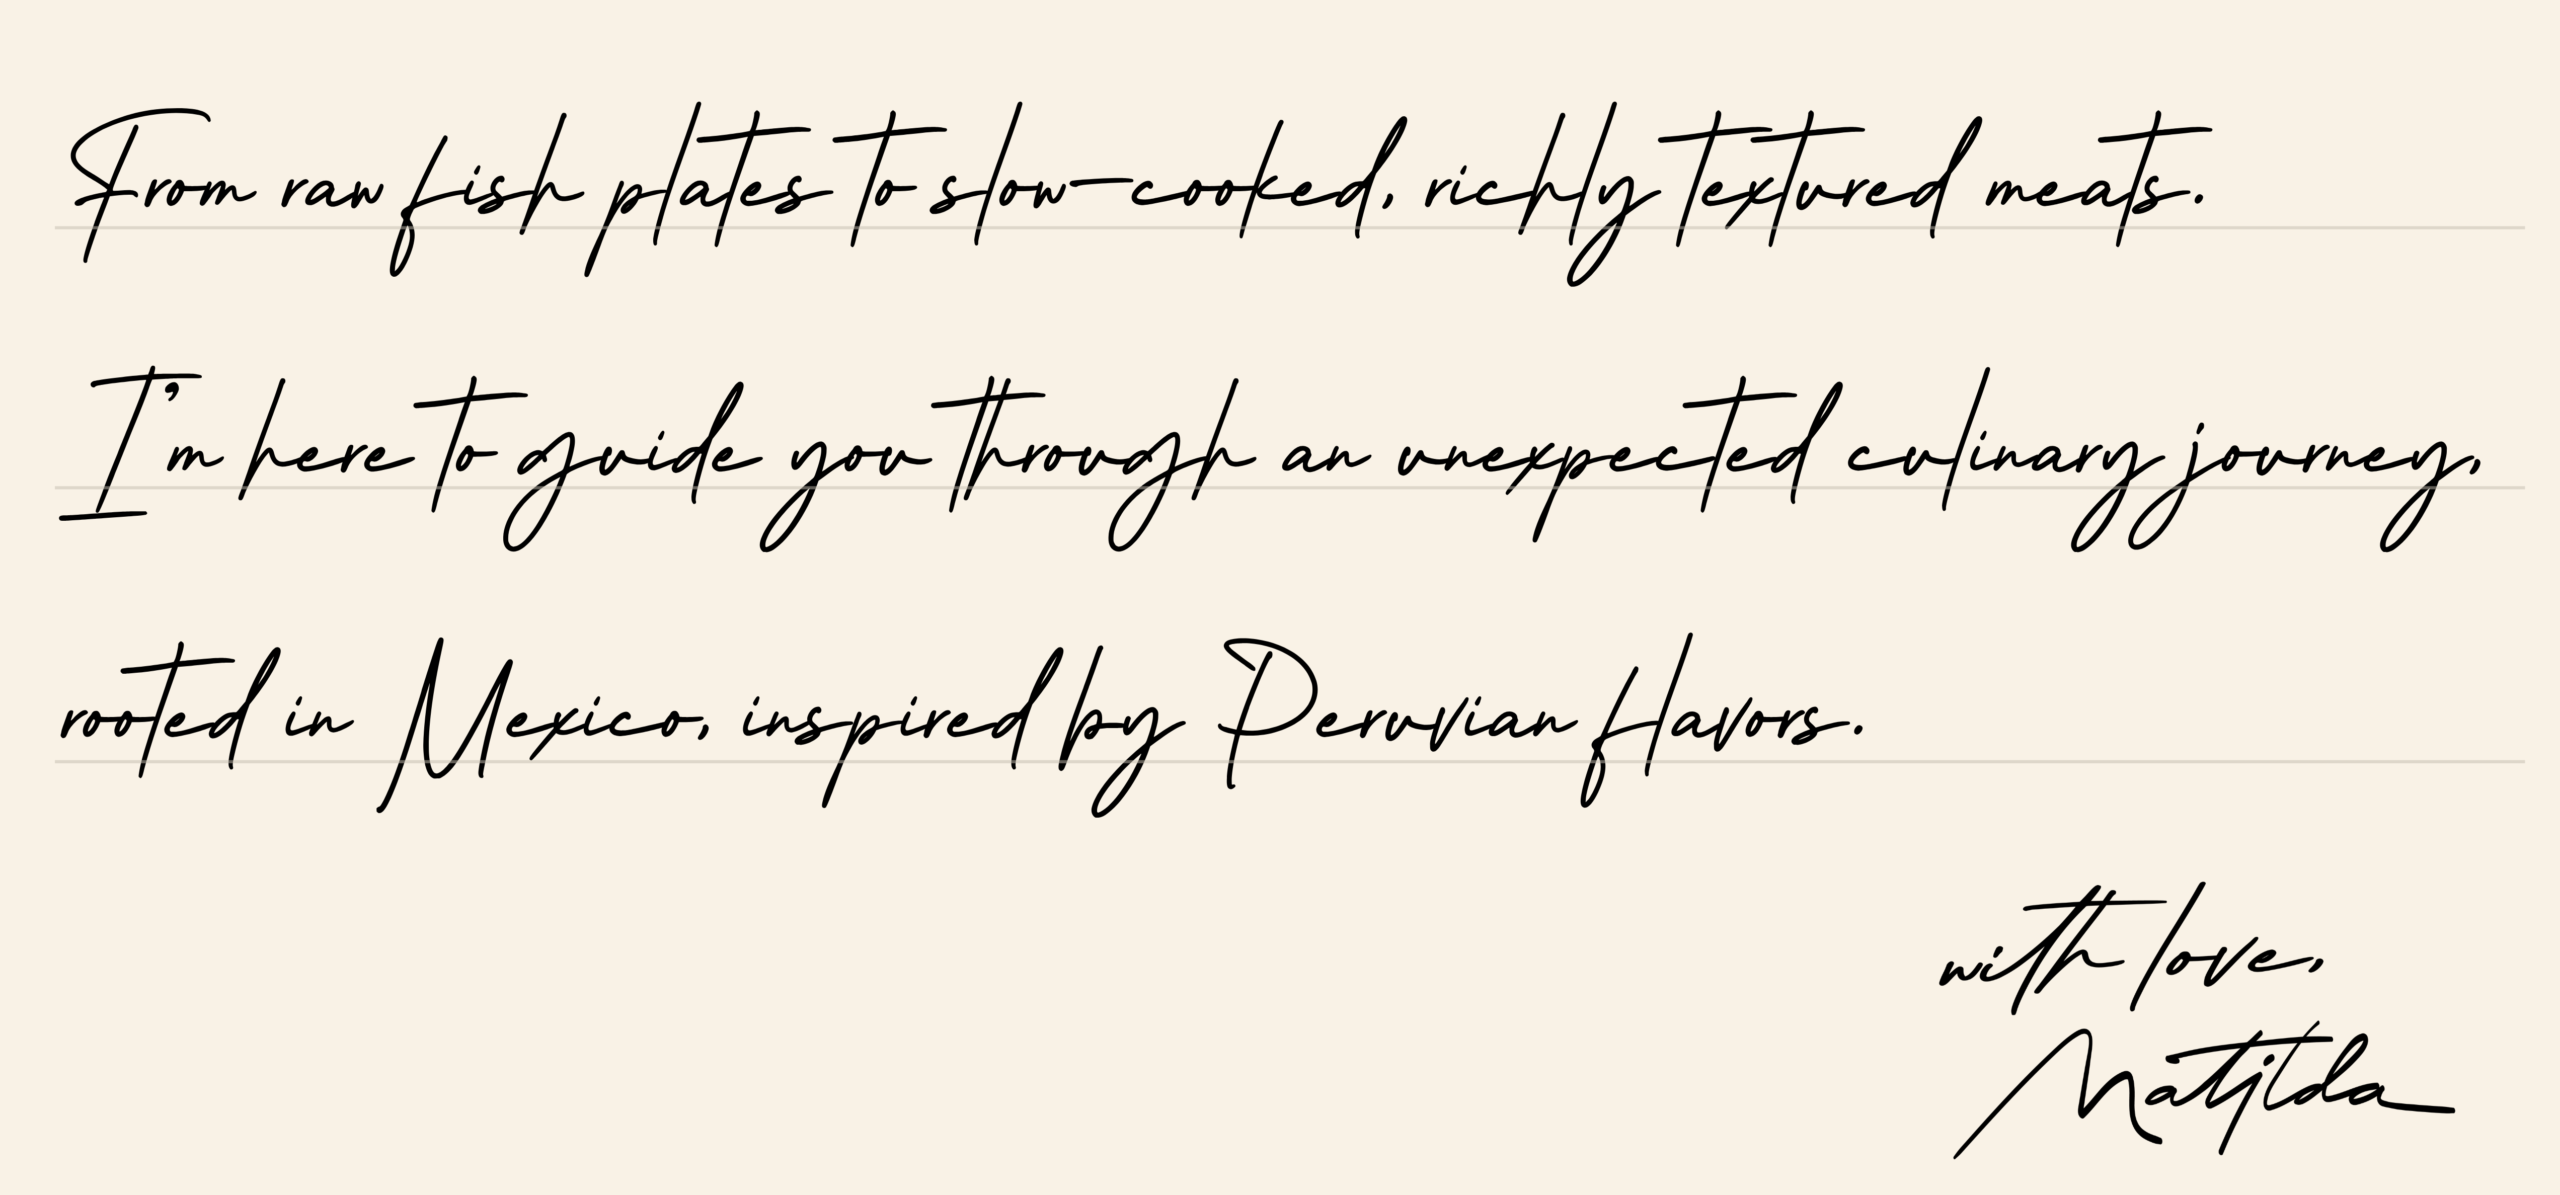 From raw fish plates to slow-cooked, richly textured meats.
I'm here to guide you through an unexpected culinary journey,
rooted in Mexico, inspired by Peruvian flavors.
with love,
Matilda